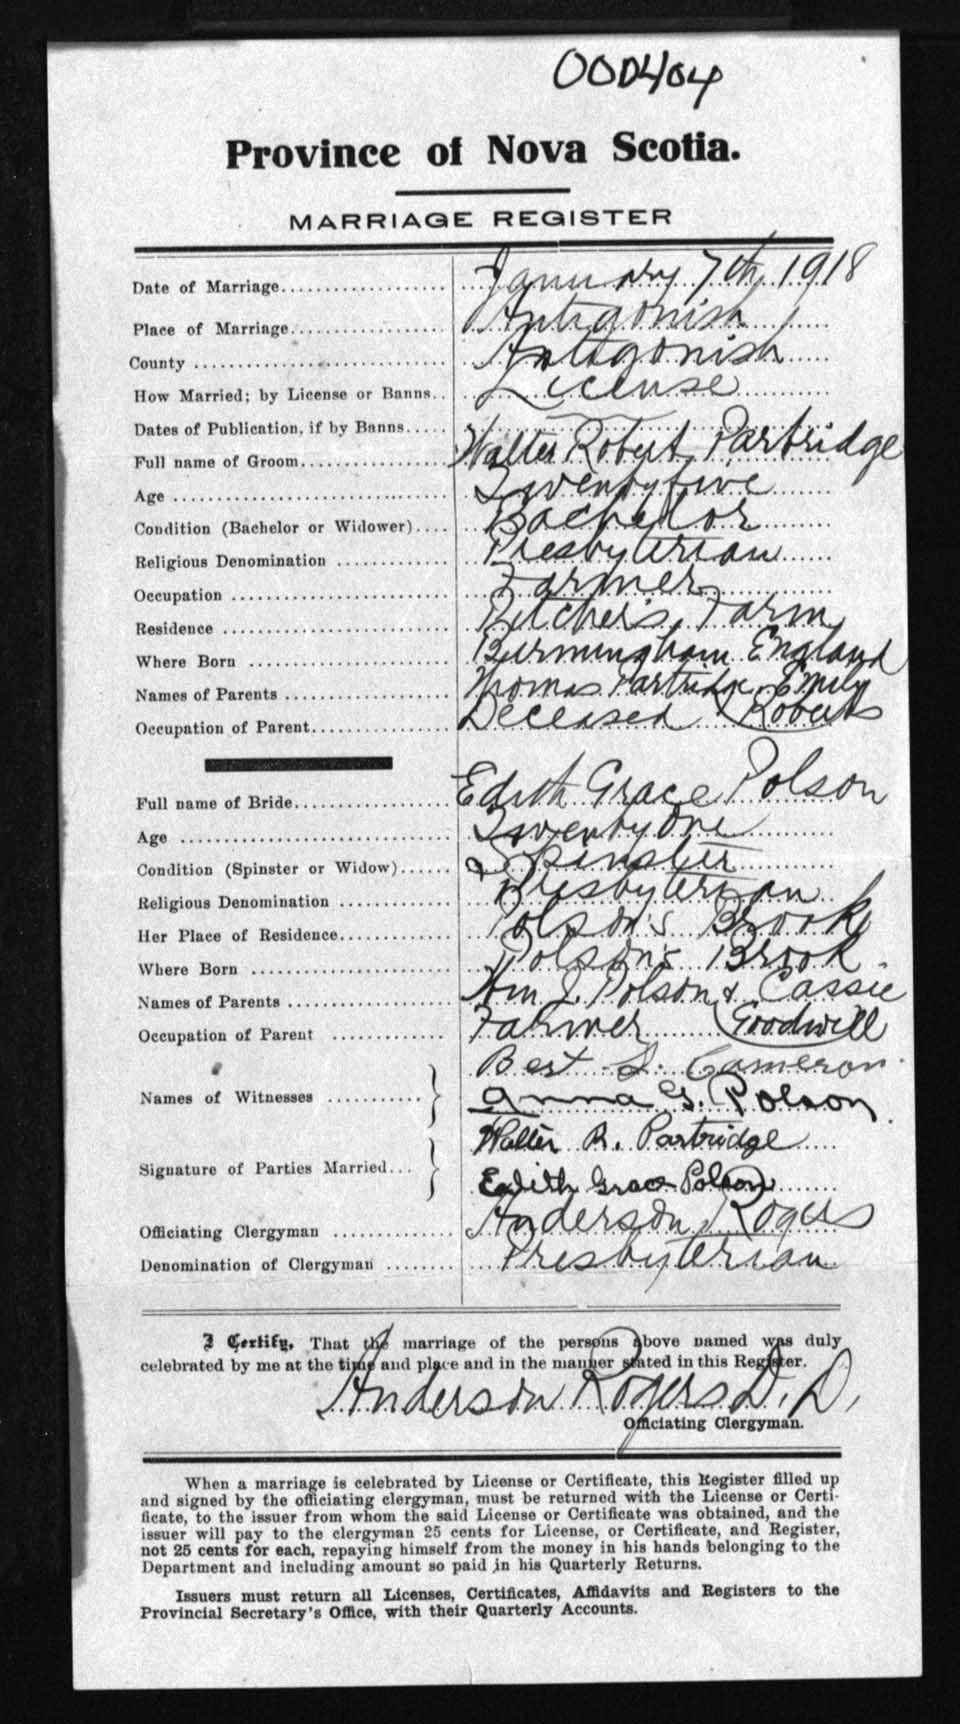 000404
Province of Nova Scotia.
MARRIAGE REGISTER
Date of Marriage.................... January 7th, 1918
Place of Marriage................... Antigonish
County ............................. Antigonish
How Married; by License or Banns.. License
Dates of Publication, if by Banns.....
Full name of Groom.................. Walter Robert Partridge
Age ................................ Twenty five
Condition (Bachelor or Widower).... Bachelor
Religious Denomination ............ Presbyterian
Occupation ......................... Farmer
Residence .......................... Farm
Where Born ........................ Birmingham England
Names of Parents .................. Thomas Partridge, Emily
Occupation of Parent............... Deceased Roberts
Full name of Bride.................. Edith Grace Polson
Age ................................ Twenty One
Condition (Spinster or Widow)...... Spinster
Religious Denomination ............ Presbyterian
Her Place of Residence............. Polson's Brook
Where Born ........................ Polson's Brook
Names of Parents .................. Wm J. Polson & Cassie
Occupation of Parent .............. Farmer Goodwill
Bert Cameron
Names of Witnesses ........... Anna G. Polson
Walter R. Partridge
Signature of Parties Married... Edith Grace Polson
Officiating Clergyman .............. Anderson Rogers
Denomination of Clergyman ........ Presbyterian
I Certify, That the marriage of the persons above named was duly
celebrated by me at the time and place and in the manner stated in this Register.
Anderson Rogers D. D.
Officiating Clergyman.
When a marriage is celebrated by License or Certificate, this Register filled up
and signed by the officiating clergyman, must be returned with the License or Certi-
ficate, to the issuer from whom the said License or Certificate was obtained, and the
issuer will pay to the clergyman 25 cents for License, or Certificate, and Register,
not 25 cents for each, repaying himself from the money in his hands belonging to the
Department and including amount so paid in his Quarterly Returns.
Issuers must return all Licenses, Certificates, Affidavits and Registers to the
Provincial Secretary's Office, with their Quarterly Accounts.